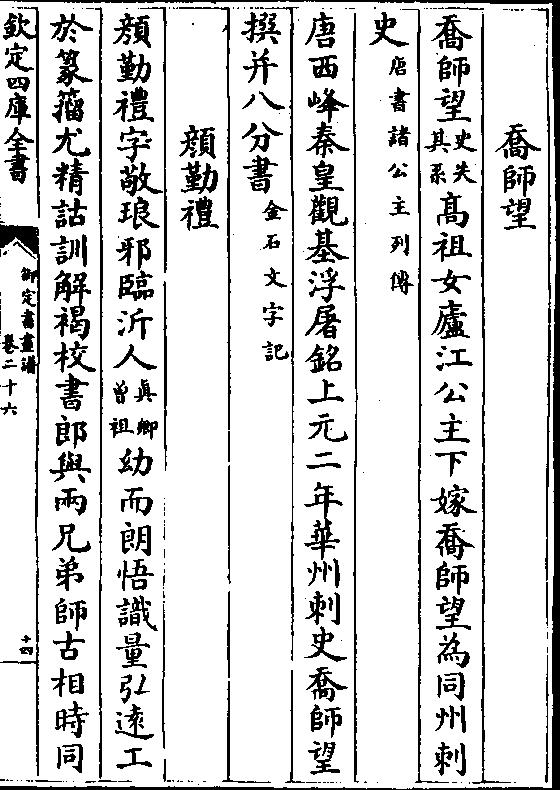 喬師望
喬師望史失其系高祖女廬江公主下嫁喬師望為同州刺
史唐書諸公主列傳
唐西峰秦皇觀基浮屠銘上元二年華州刺史喬師望
撰并八分書金石文字記
顔勤禮
顔勤禮字敬琅邪臨沂人真卿曾祖幼而朗悟識量弘遠工
於篆籀尤精詁訓解褐校書郎與兩兄弟師古相時同
欽定四庫全書
御定書畫譜
卷二十六
十四